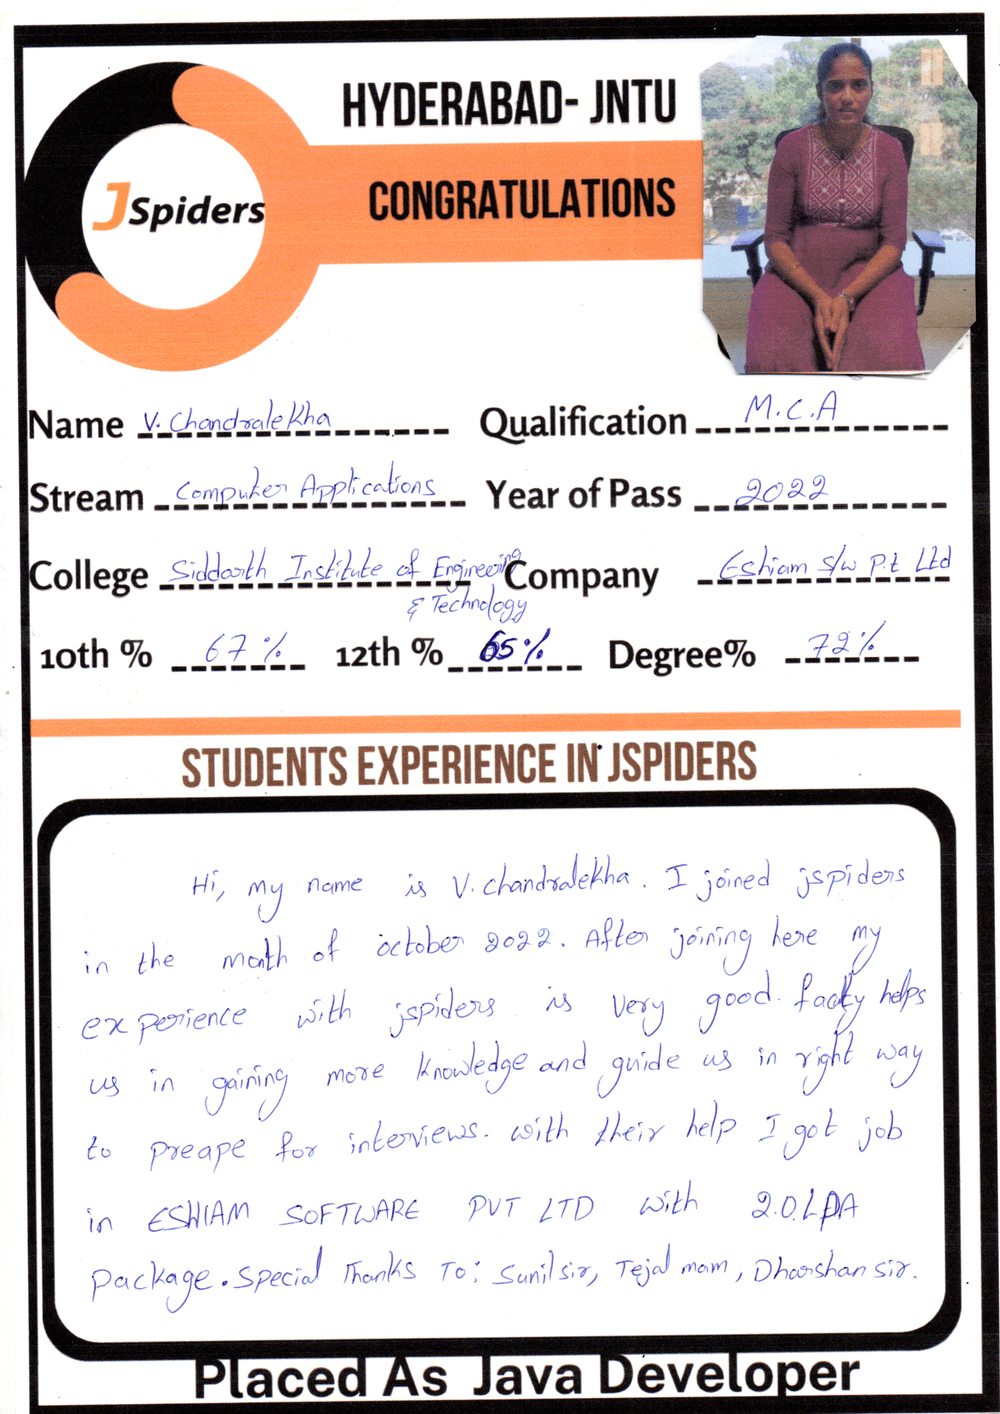 HYDERABAD- JNTU
JSpiders
CONGRATULATIONS
Name V. Chandralekha Qualification M.C.A
Stream Computer Applications Year of Pass 2022
College Siddarth Institute of Engineering & Technology Company Eshiam S/w P.t Ltd
10th % 67% 12th % 65% Degree% 72%
STUDENTS EXPERIENCE IN JSPIDERS
Hi, my name is V. chandralekha. I joined jspiders
in the month of october 2022. After joining here my
experience with jspiders is very good. faclty helps
us in gaining more knowledge and guide us in right way
to preape for interviews. with their help I got job
in ESHIAM SOFTWARE PVT LTD with 2.0.LPA
package. Special Thanks To: Sunil sir, Tejal mam, Dharshan sir.
Placed As Java Developer